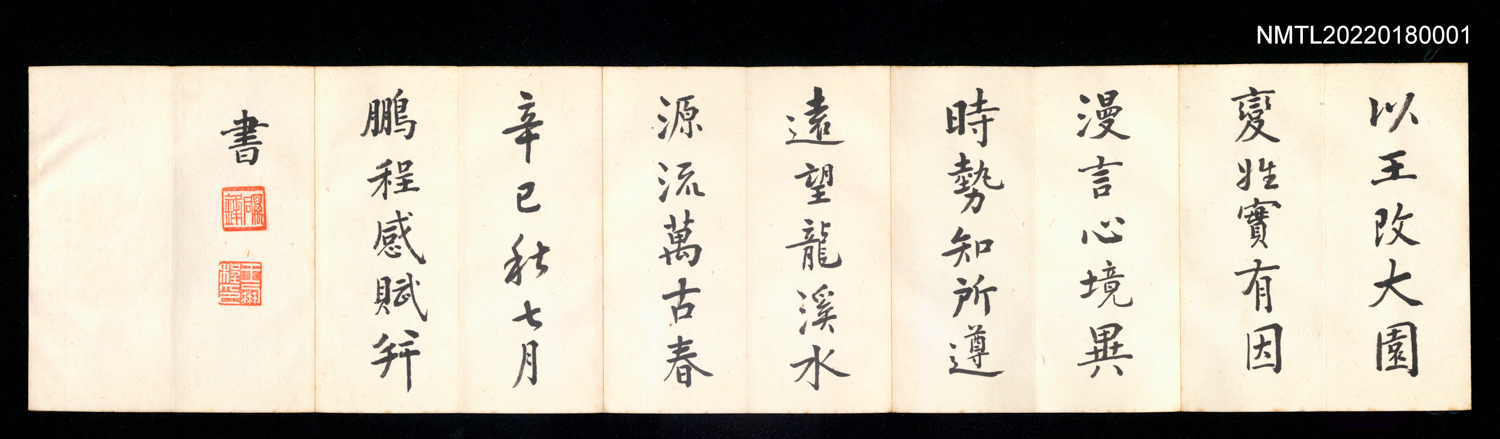 NMTL20220180001
以王改大園
變姓實有因
漫言心境異
時勢知所遵
遠望龍溪水
源流萬古春
辛巳秋七月
鵬程感賦并
書